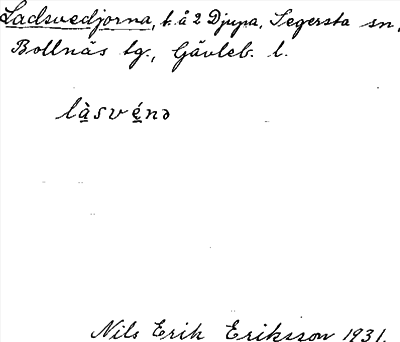 Ladsvedjorna, t. å 2 Djupa, Segersta sn,
Bollnäs tg., Gävleb. l.
làsvénə
Nils Erik Eriksson 1931.